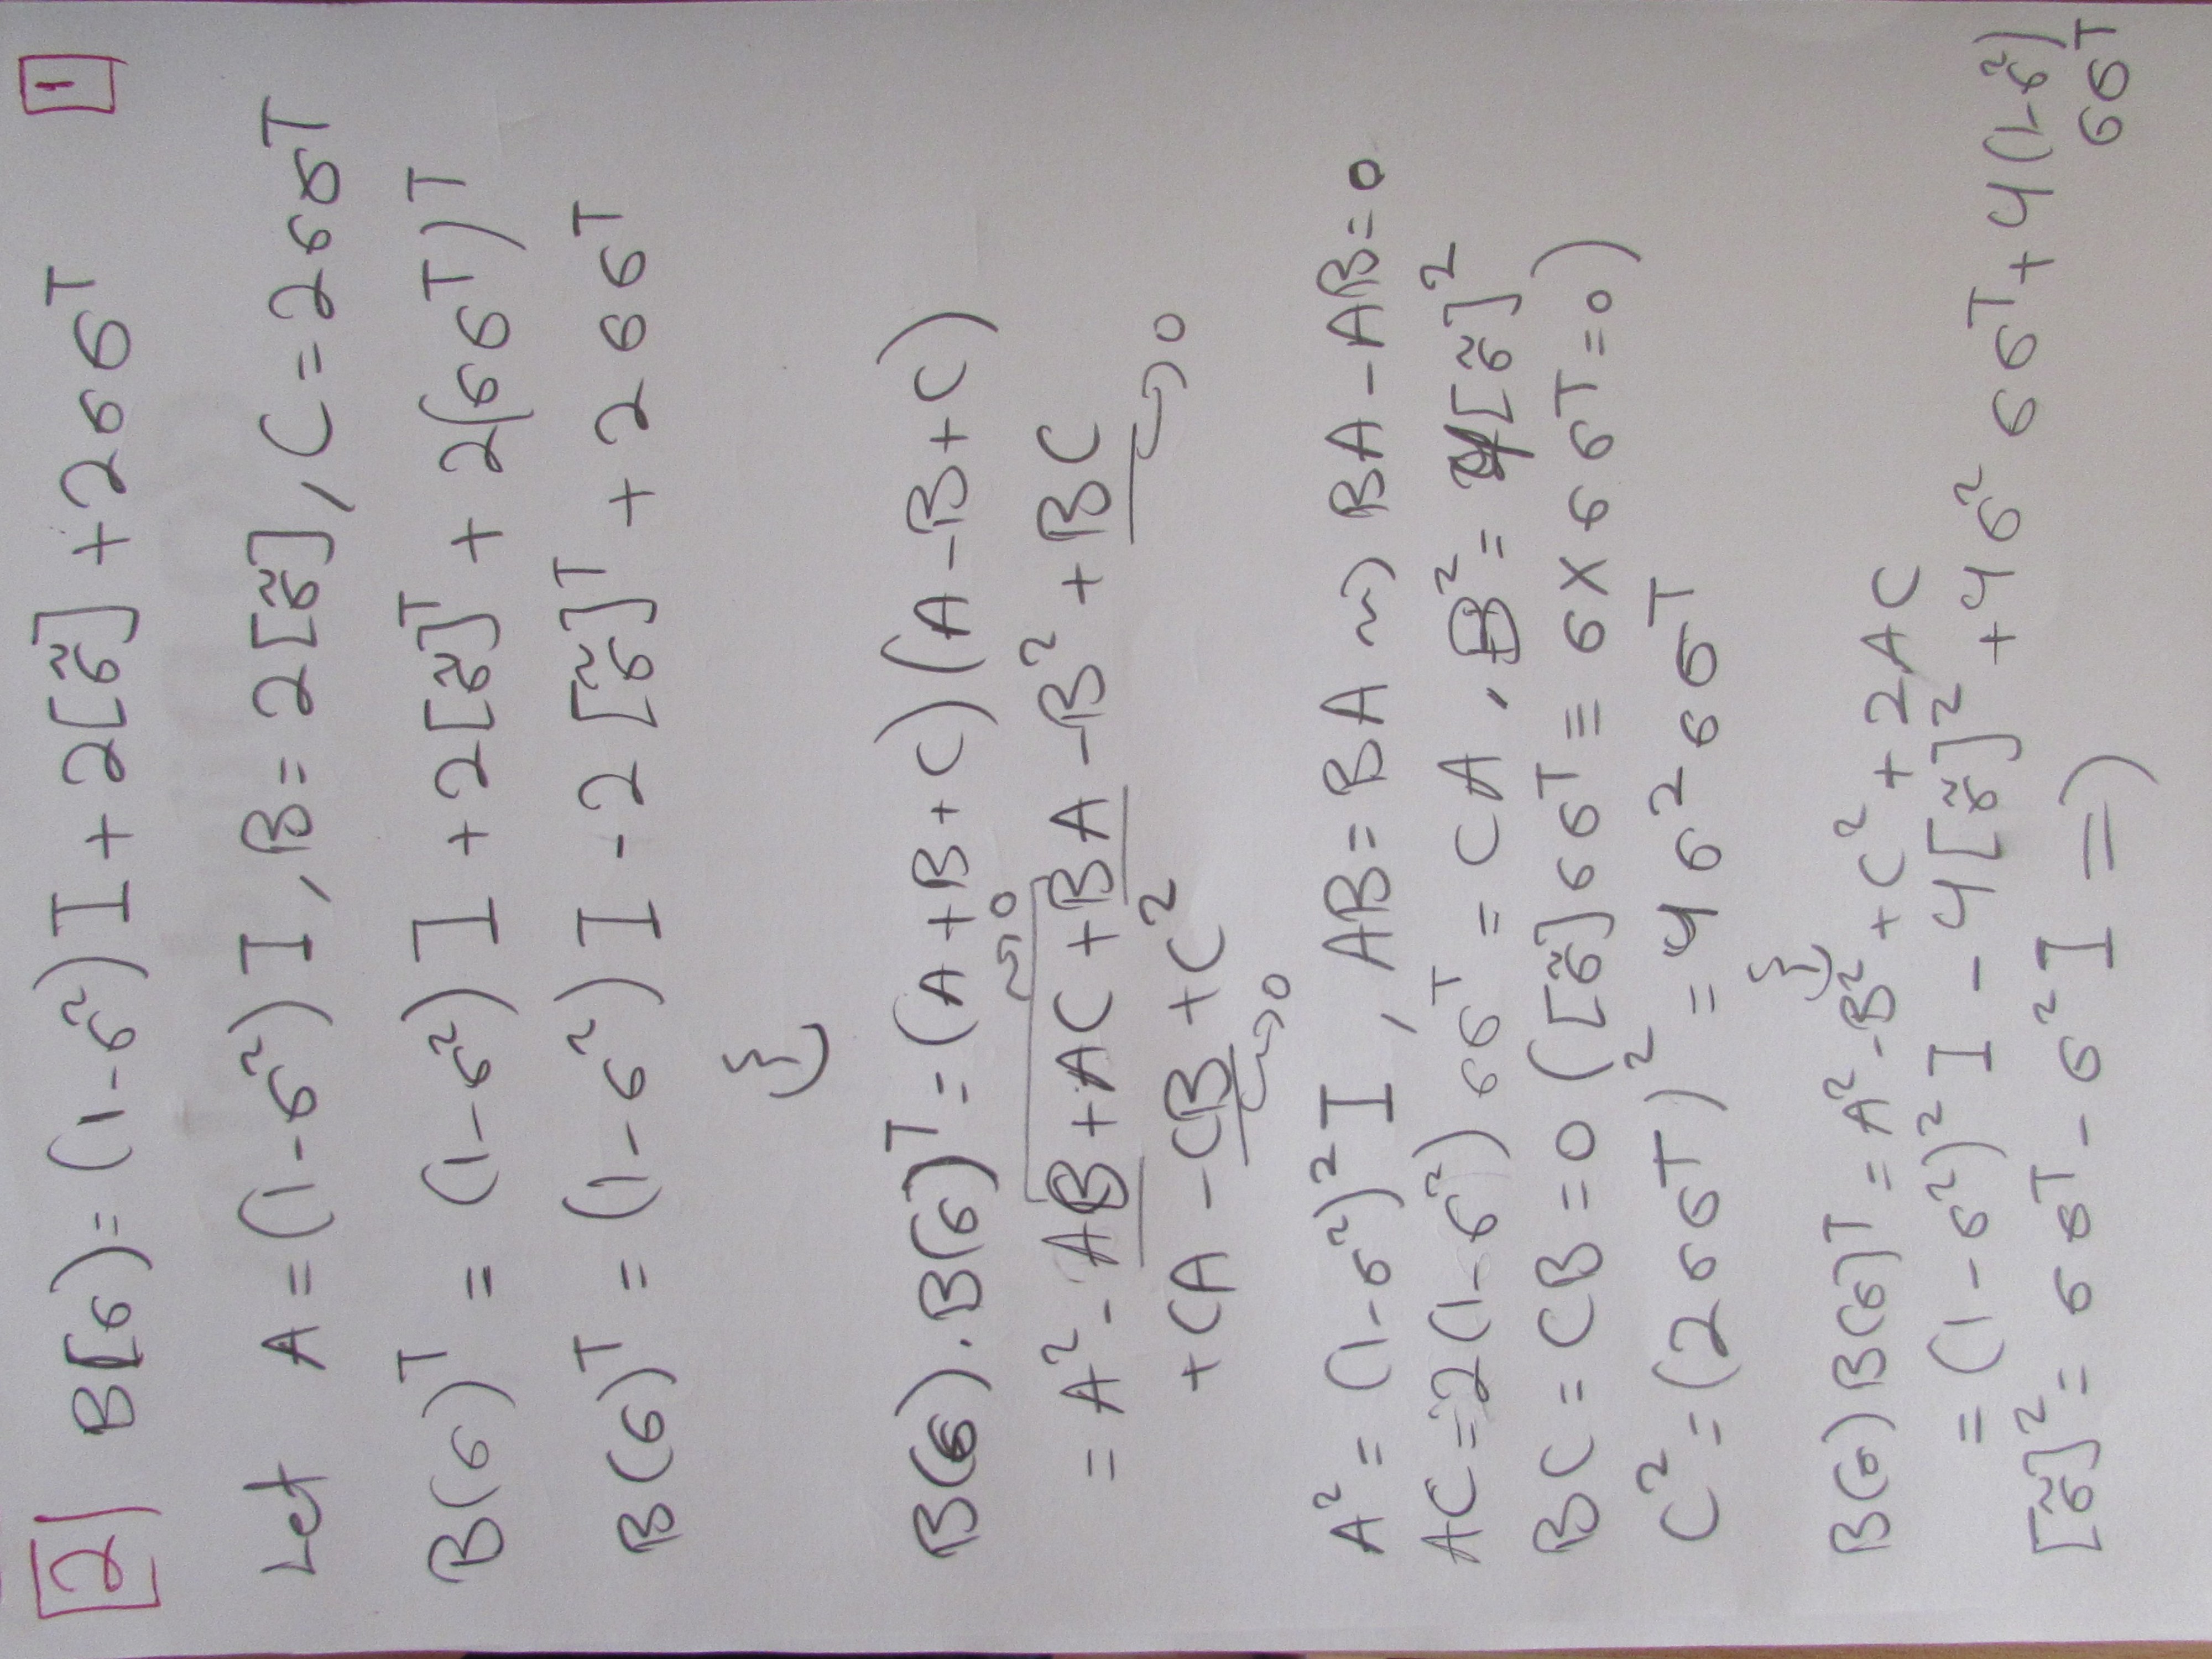 [2] B[σ) = (1-σ²) I + 2[σ̃] + 2σσᵀ [1]
Let A = (1-σ²) I, B = 2[σ̃], C = 2σσᵀ
B(σ)ᵀ = (1-σ²) I + 2[σ̃]ᵀ + 2(σσᵀ)ᵀ
B(σ)ᵀ = (1-σ²) I - 2[σ̃]ᵀ + 2σσᵀ
B(σ).B(σ)ᵀ = (A+B+C)(A-B+C)
⇝0
= A² - AB + AC + BA - B² + BC
→0
+CA - CB + C²
→0
A² = (1-σ²)² I, AB = BA ⇝ BA - AB = 0
AC = 2(1-σ²) σσᵀ = CA, B² = 4[σ̃]²
BC = CB = 0 ([σ̃]σσᵀ ≡ σ×σσᵀ = 0)
C² = (2σσᵀ)² = 4σ²σσᵀ
B(σ)B(σ)ᵀ = A² - B² + C² + 2AC
= (1-σ²)² I - 4[σ̃]² + 4σ²σσᵀ + 4(1-σ²)
σσᵀ
[σ̃]² = σσᵀ - σ² I ⇒